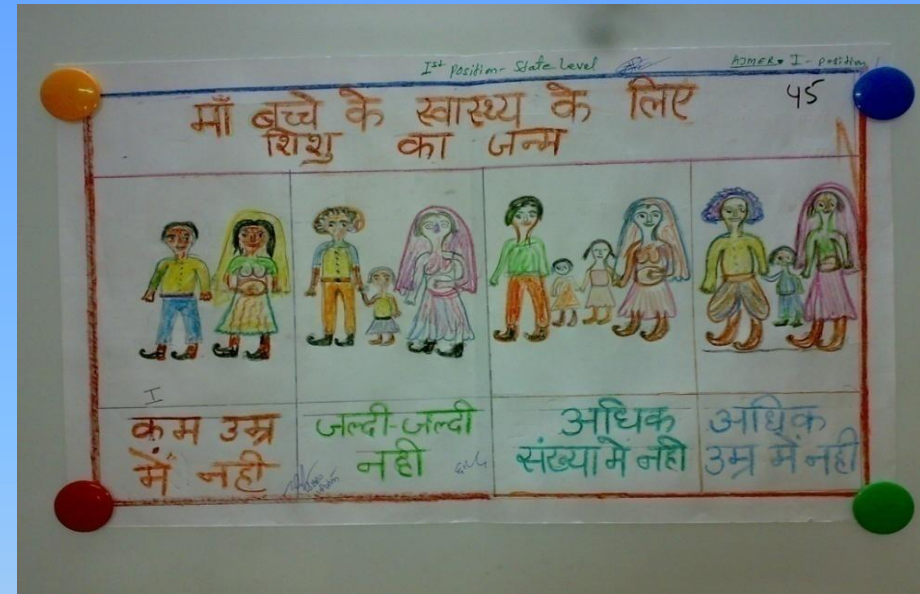 Ist Position- State Level
AJMER I - position
45
माँ बच्चे के स्वास्थ्य के लिए
शिशु का जन्म
I
कम उम्र
में नही
जल्दी-जल्दी
नही
अधिक
संख्या में नही
अधिक
उम्र में नही